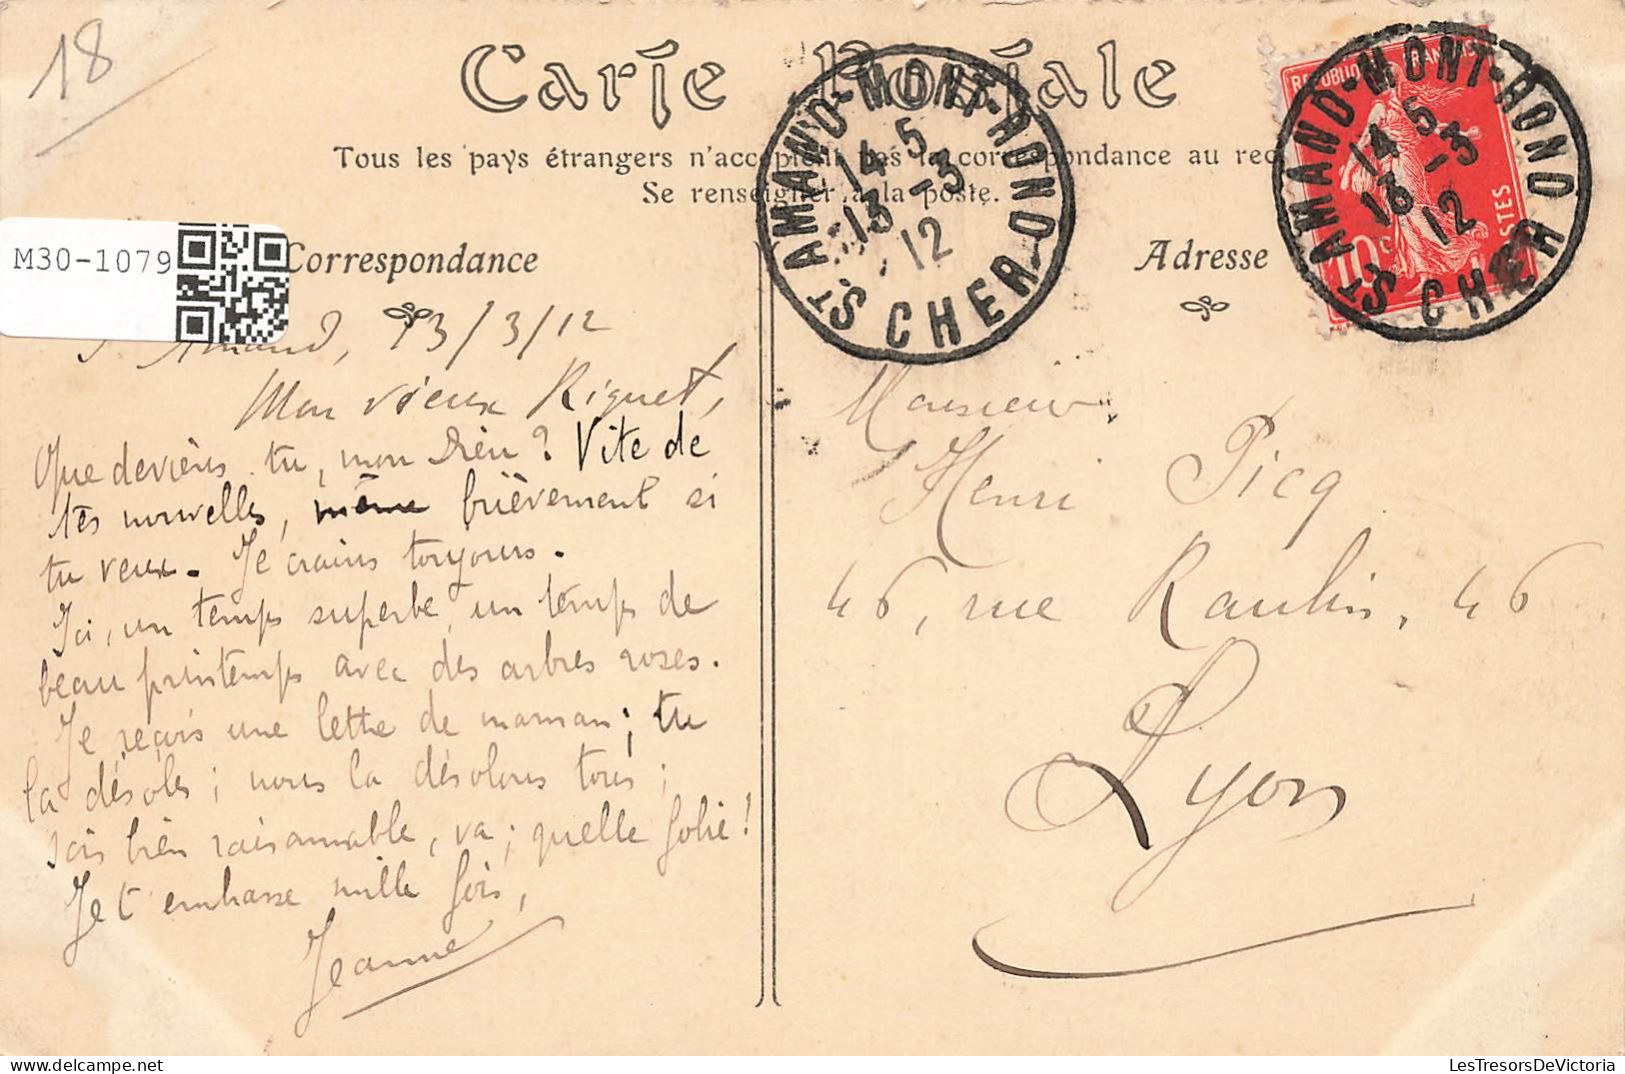 18
Carte Postale
Tous les pays étrangers n'acceptent pas la correspondance au rec
Se renseigner à la poste.
M30-1079
Correspondance
Adresse
REPUBLIQUE FRANÇAISE
10c
POSTES
ST AMAND-MONT-ROND
CHER
14 5
13 -3
12
ST AMAND-MONT-ROND
CHER
14 5
13 -3
12
St Amand, 13/3/12
Mon vieux Riquet,
Que deviens tu, mon Dieu? Vite de
tes nouvelles, même brièvement si
tu veux. Je crains toujours.
Ici, un temps superbe, un temps de
beau printemps avec des arbres roses.
Je reçois une lettre de maman; tu
la désoles; nous la désolons tous;
sois bien raisonnable, va; quelle folie!
Je t'embrasse mille fois,
Jeanne
Monsieur
Henri Picq
46, rue Raulin, 46
Lyon
LesTresorsDeVictoria